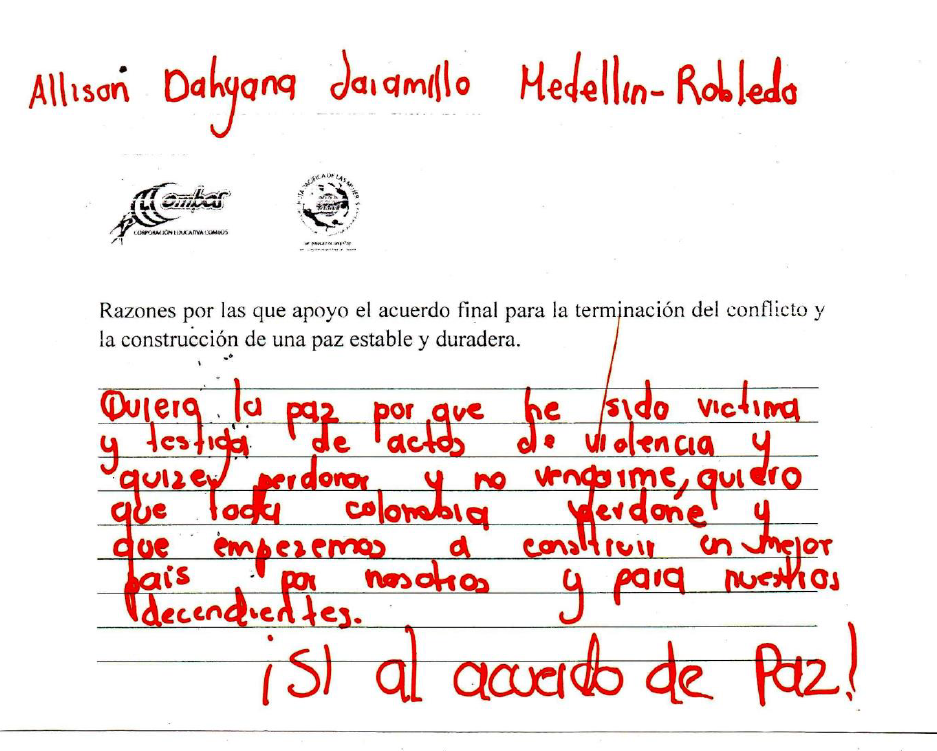 Allison Dahyana Jaramillo Medellin-Robledo
Combos
CORPORACIÓN EDUCATIVA COMBOS
Razones por las que apoyo el acuerdo final para la terminación del conflicto y
la construcción de una paz estable y duradera.
Quiero la paz por que he sido victima
y testiga de actos de violencia y
quize perdonar y no vengarme, quiero
que toda colombia perdone y
que empezemos a construir un mejor
pais por nosotros y para nuestros
decendientes.
¡SI al acuerdo de Paz!